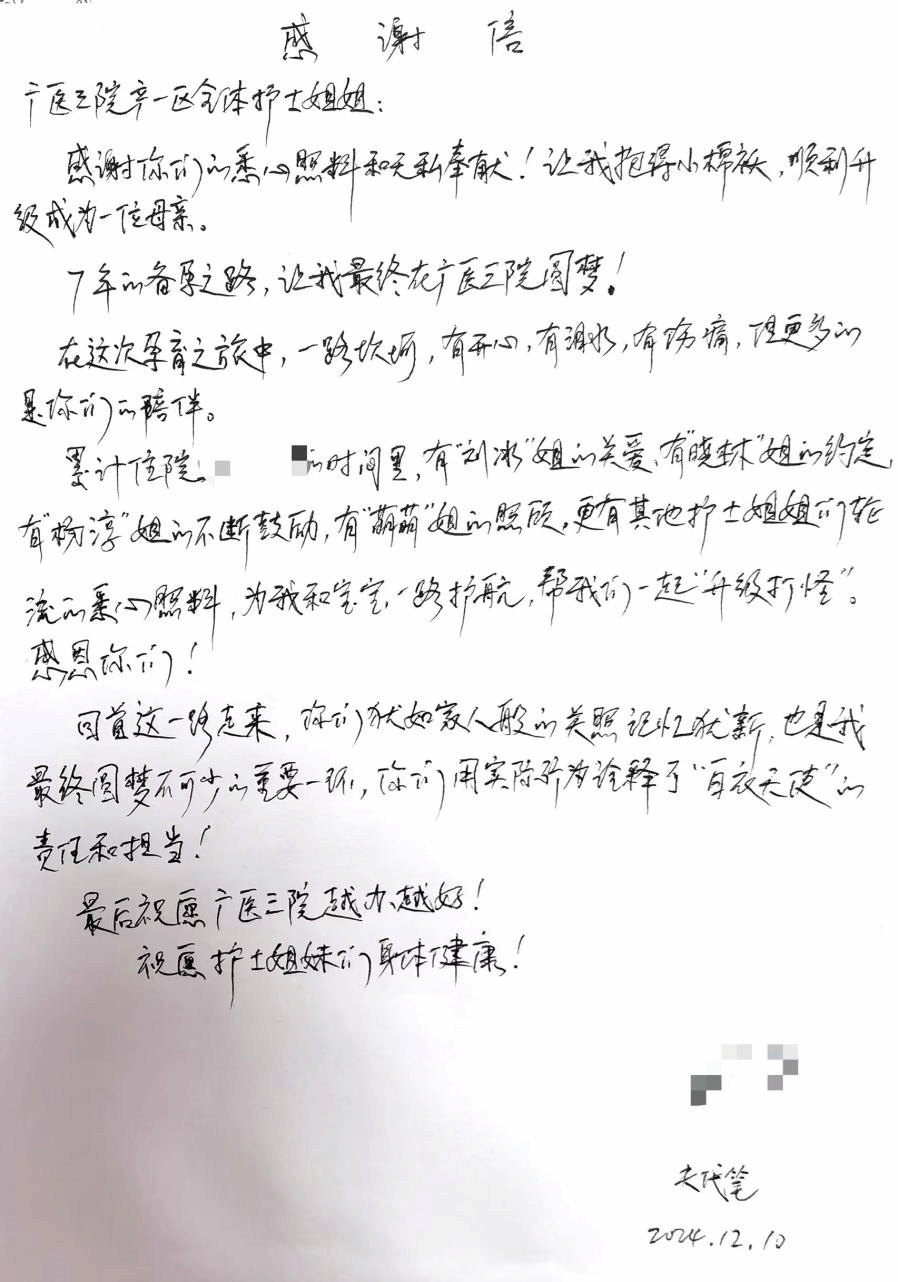 感谢信
广医三院产一区全体护士姐姐：
感谢你们的悉心照料和无私奉献！让我抱得小棉袄，顺利升
级成为一位母亲。
7年的备孕之路，让我最终在广医三院圆梦！
在这次孕育之旅中，一路坎坷，有开心，有泪水，有伤痛，但更多的
是你们的陪伴。
累计住院 的时间里，有“刘冰”姐的关爱、有“晓林”姐的约定，
有“杨淳”姐的不断鼓励，有“萌萌”姐的照顾，更有其他护士姐姐们轮
流的悉心照料，为我和宝宝一路护航，帮我们一起“升级打怪”。
感恩你们！
回首这一路走来，你们犹如家人般的关照记忆犹新，也是我
最终圆梦不可少的重要一环，你们用实际行为诠释了“白衣天使”的
责任和担当！
最后祝愿广医三院越办越好！
祝愿护士姐妹们身体健康！
夫代笔
2024.12.10